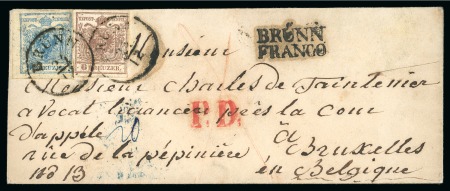 BRÜNN
FRANCO
Monsieur
Monsieur Charles de
avocat près la cour
d'appel
P.D.
à
rue de la pépinière Bruxelles
No 13 en Belgique
KREUZER